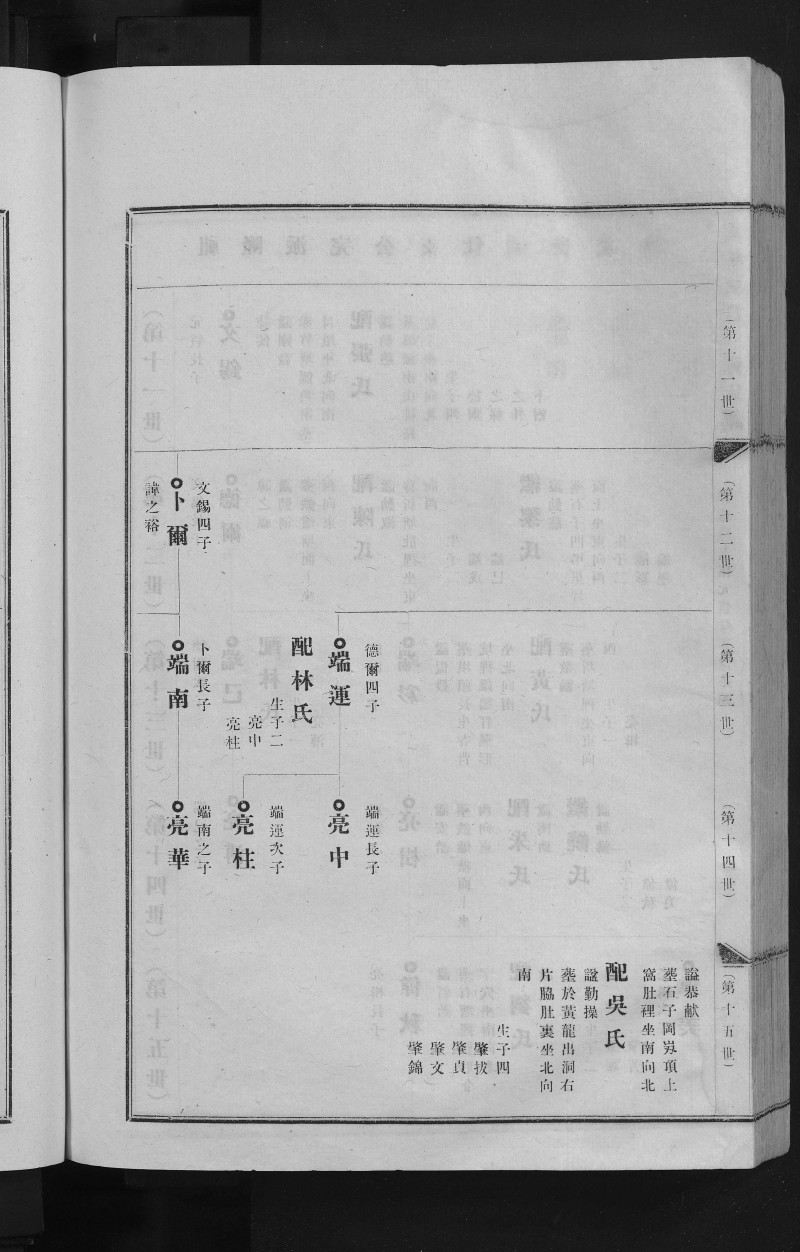 （第十一世）
（第十二世）
（第十三世）
（第十四世）
（第十五世）
文錫四子
卜爾
諱之裕
德爾四子
端運
配林氏
生子二
亮中
亮柱
卜爾長子
端南
端運長子
亮中
端運次子
亮柱
端南之子
亮華
諡恭献
塟石子岡㟁項上
窩肚裡坐南向北
配吳氏
諡勤操
塟於黃龍出洞右
片脇肚裏坐北向
南
生子四
肇拔
肇貞
肇文
肇錦